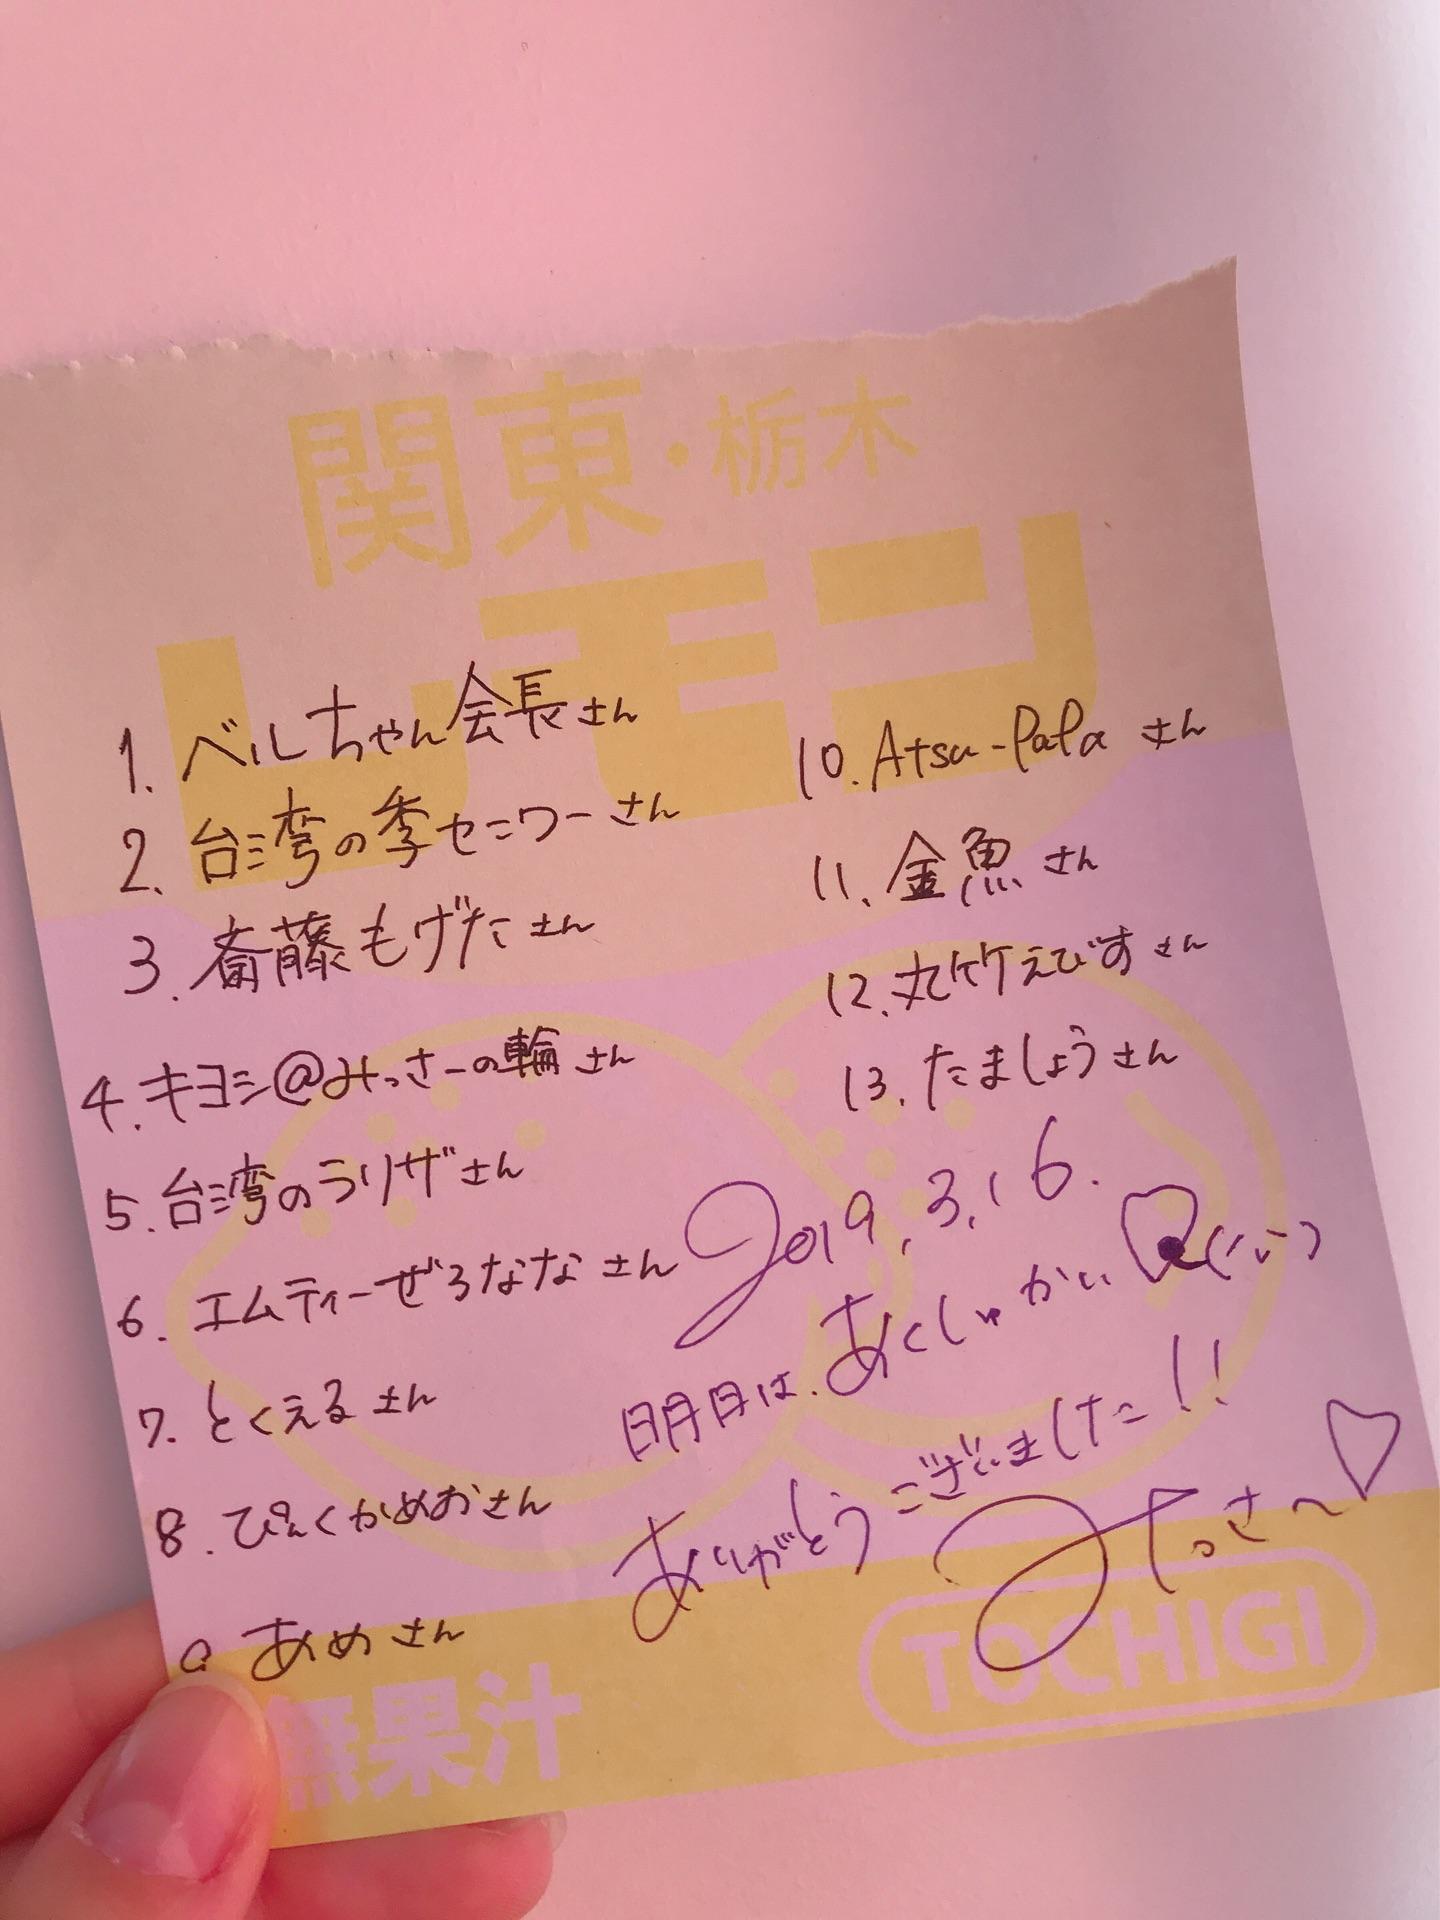 関東・栃木
レモン
1. ベルちゃん会長さん
2. 台湾の季セニワーさん
3. 斎藤もげたさん
4. キヨシ@みっさーの輪さん
5. 台湾のラリザさん
6. エムティーぜろななさん
7. とくえるさん
8. ぴんくかめおさん
9 あめさん
10. Atsu-PaPaさん
11. 金魚さん
12. 丸竹えびすさん
13. たましょうさん
2019.3.16.
明日は、あくしゅかい
ありがとうございました!!
みっさ〜♡
無果汁
TOCHIGI